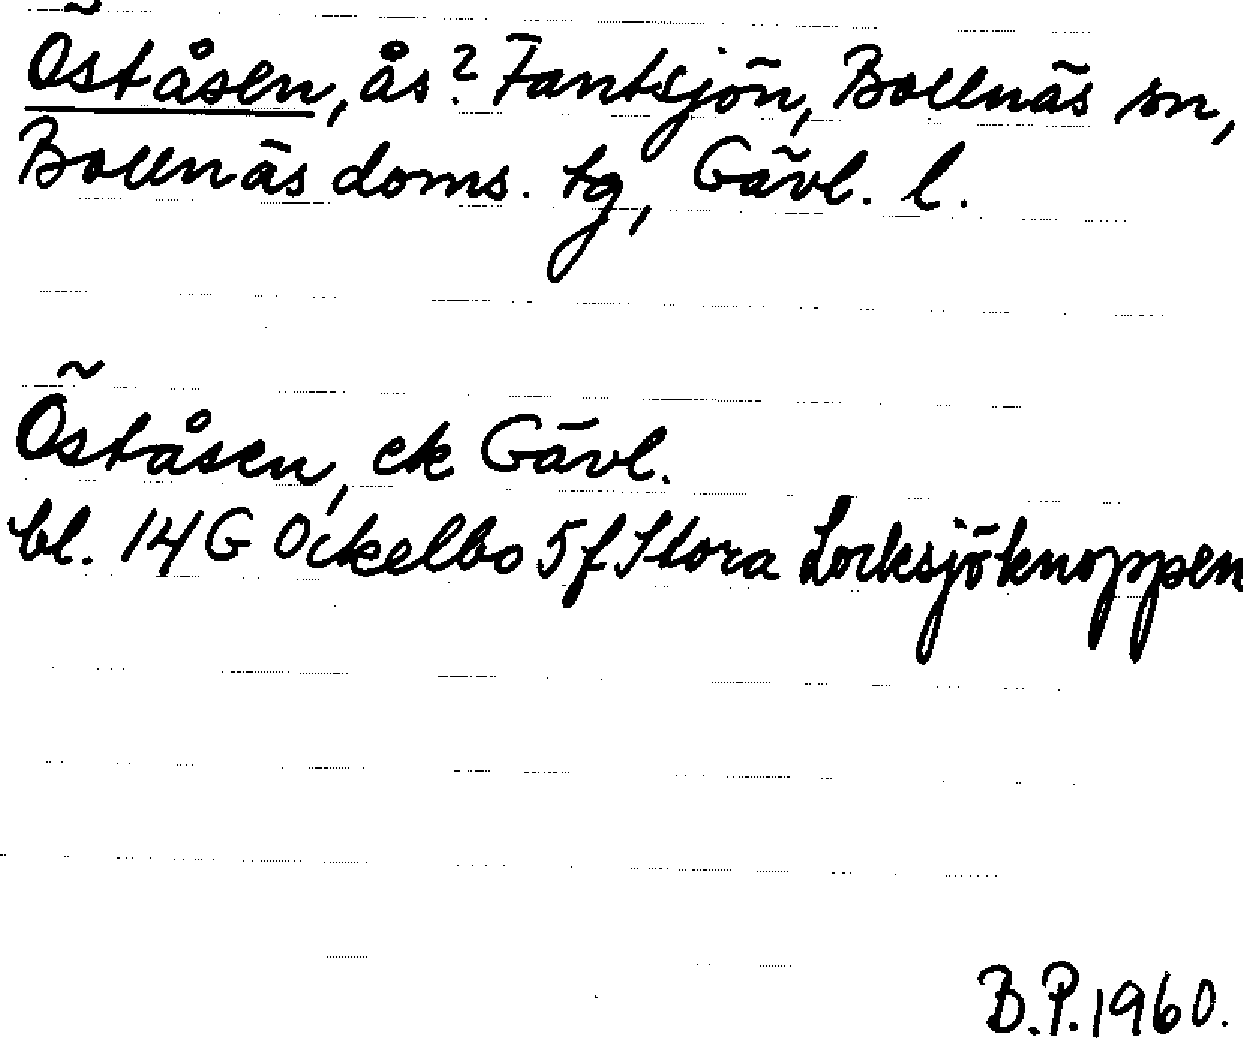 Öståsen, ås? Fantsjön, Bollnäs sn,
Bollnäs doms. tg, Gävl. l.
Öståsen, ek Gävl.
bl. 14 G Ockelbo 5 f Stora Locksjöknoppen
B.P. 1960.